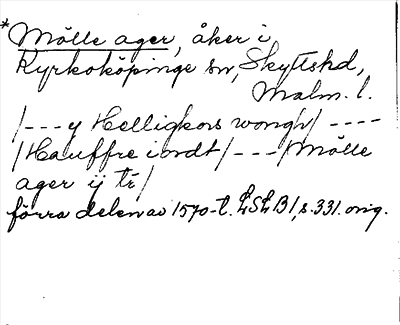 *Mölle ager, åker i
Kyrkoköpinge sn, Skyttshd,
Malm. l.
/---y Helligkors wongh/ ----
/Hauffre iordt/---/Mölle
ager ij tr/
förra delen av 1570-t. LSLB1, s. 331. orig.